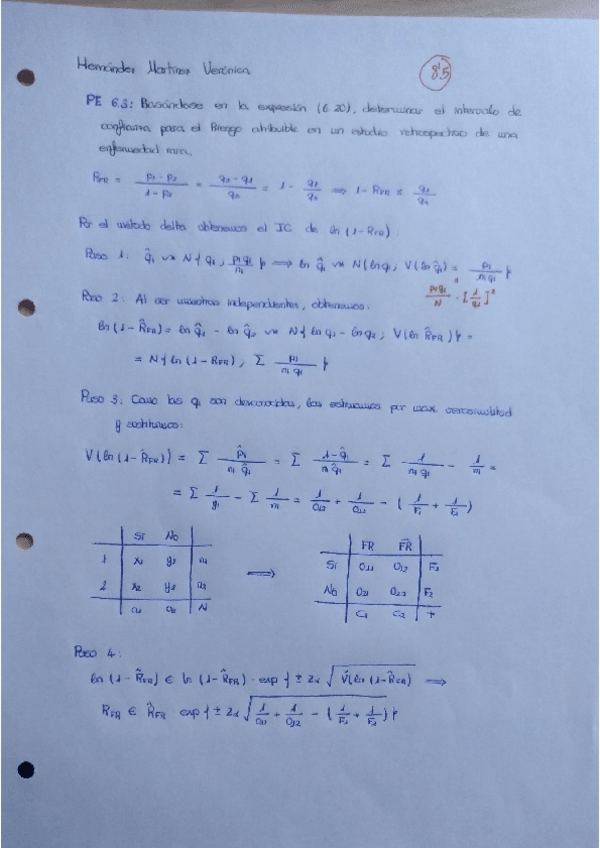 Hernández Martínez Verónica
8'5
PE 6.3: Basándose en la expresión (6.20), determinar el intervalo de
confianza para el Riesgo atribuible en un estudio retrospectivo de una
enfermedad rara.
R_FR = (p₁ - p₂)/(1 - p₂) = (q₂ - q₁)/q₂ = 1 - q₁/q₂ ⟹ 1 - R_FR = q₁/q₂
Por el método delta obtenemos el IC de ln (1 - R_FR):
Paso 1: q̂i ~ N{qi; pi qi/ni} ⟹ ln q̂i ~ N{ln qi; V(ln q̂i) = pi/(ni qi)}
pi qi/N · [1/qi]²
Paso 2: Al ser muestras independientes, obtenemos:
ln (1 - R̂_FR) = ln q̂₁ - ln q̂₂ ~ N{ln q₁ - ln q₂; V(ln R̂_FR)} =
= N{ln (1 - R_FR); Σ pi/(ni qi)}
Paso 3: Como las qi son desconocidas, las estimamos por max. verosimilitud
y sustituimos:
V(ln (1 - R̂_FR)) = Σ p̂i/(ni q̂i) = Σ (1 - q̂i)/(ni q̂i) = Σ 1/(ni q̂i) - 1/ni =
= Σ 1/yi - Σ 1/ni = 1/O₁₂ + 1/O₂₂ - (1/F₁ + 1/F₂)
Sí No
1 x₁ y₁ n₁
2 x₂ y₂ n₂
a₁ a₂ N
⟹
FR F̅R̅
Sí O₁₁ O₁₂ F₁
No O₂₁ O₂₂ F₂
C₁ C₂ T
Paso 4:
ln (1 - R̂_FR) ∈ ln (1 - R̂_FR) · exp{± zα √V̂(ln (1 - R̂_FR)) ⟹
R_FR ∈ R̂_FR exp{± zα √(1/O₁₂ + 1/O₂₂ - (1/F₁ + 1/F₂))}